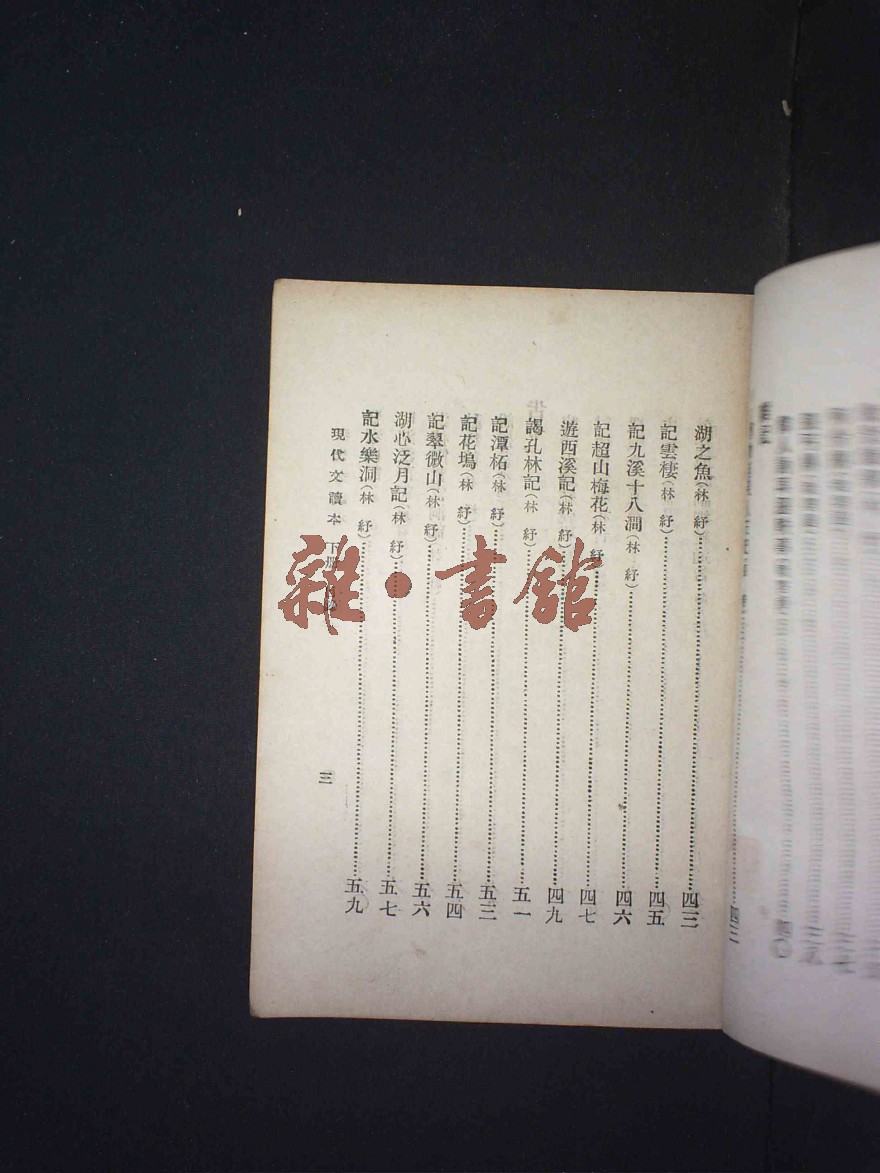 湖之魚（林　紓）……四三
記雲棲（林　紓）……四五
記九溪十八澗（林　紓）……四六
記超山梅花（林　紓）……四七
遊西溪記（林　紓）……四九
謁孔林記（林　紓）……五一
記潭柘（林　紓）……五三
記花塢（林　紓）……五四
記翠微山（林　紓）……五六
湖心泛月記（林　紓）……五七
記水樂洞（林　紓）……五九
現代文讀本　下册
三
雜·書館